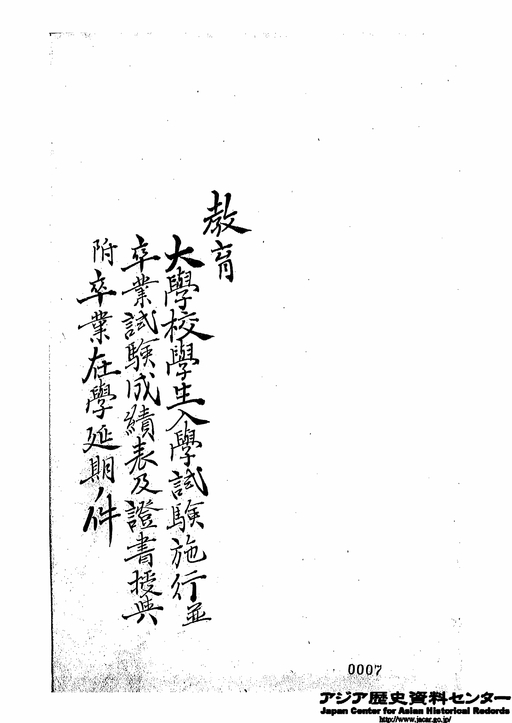 教育
大學校學生入學試験施行並
卒業試験成績表及證書授與
附卒業在學延期ノ件
0007
アジア歴史資料センター
Japan Center for Asian Historical Records
http://www.jacar.go.jp/